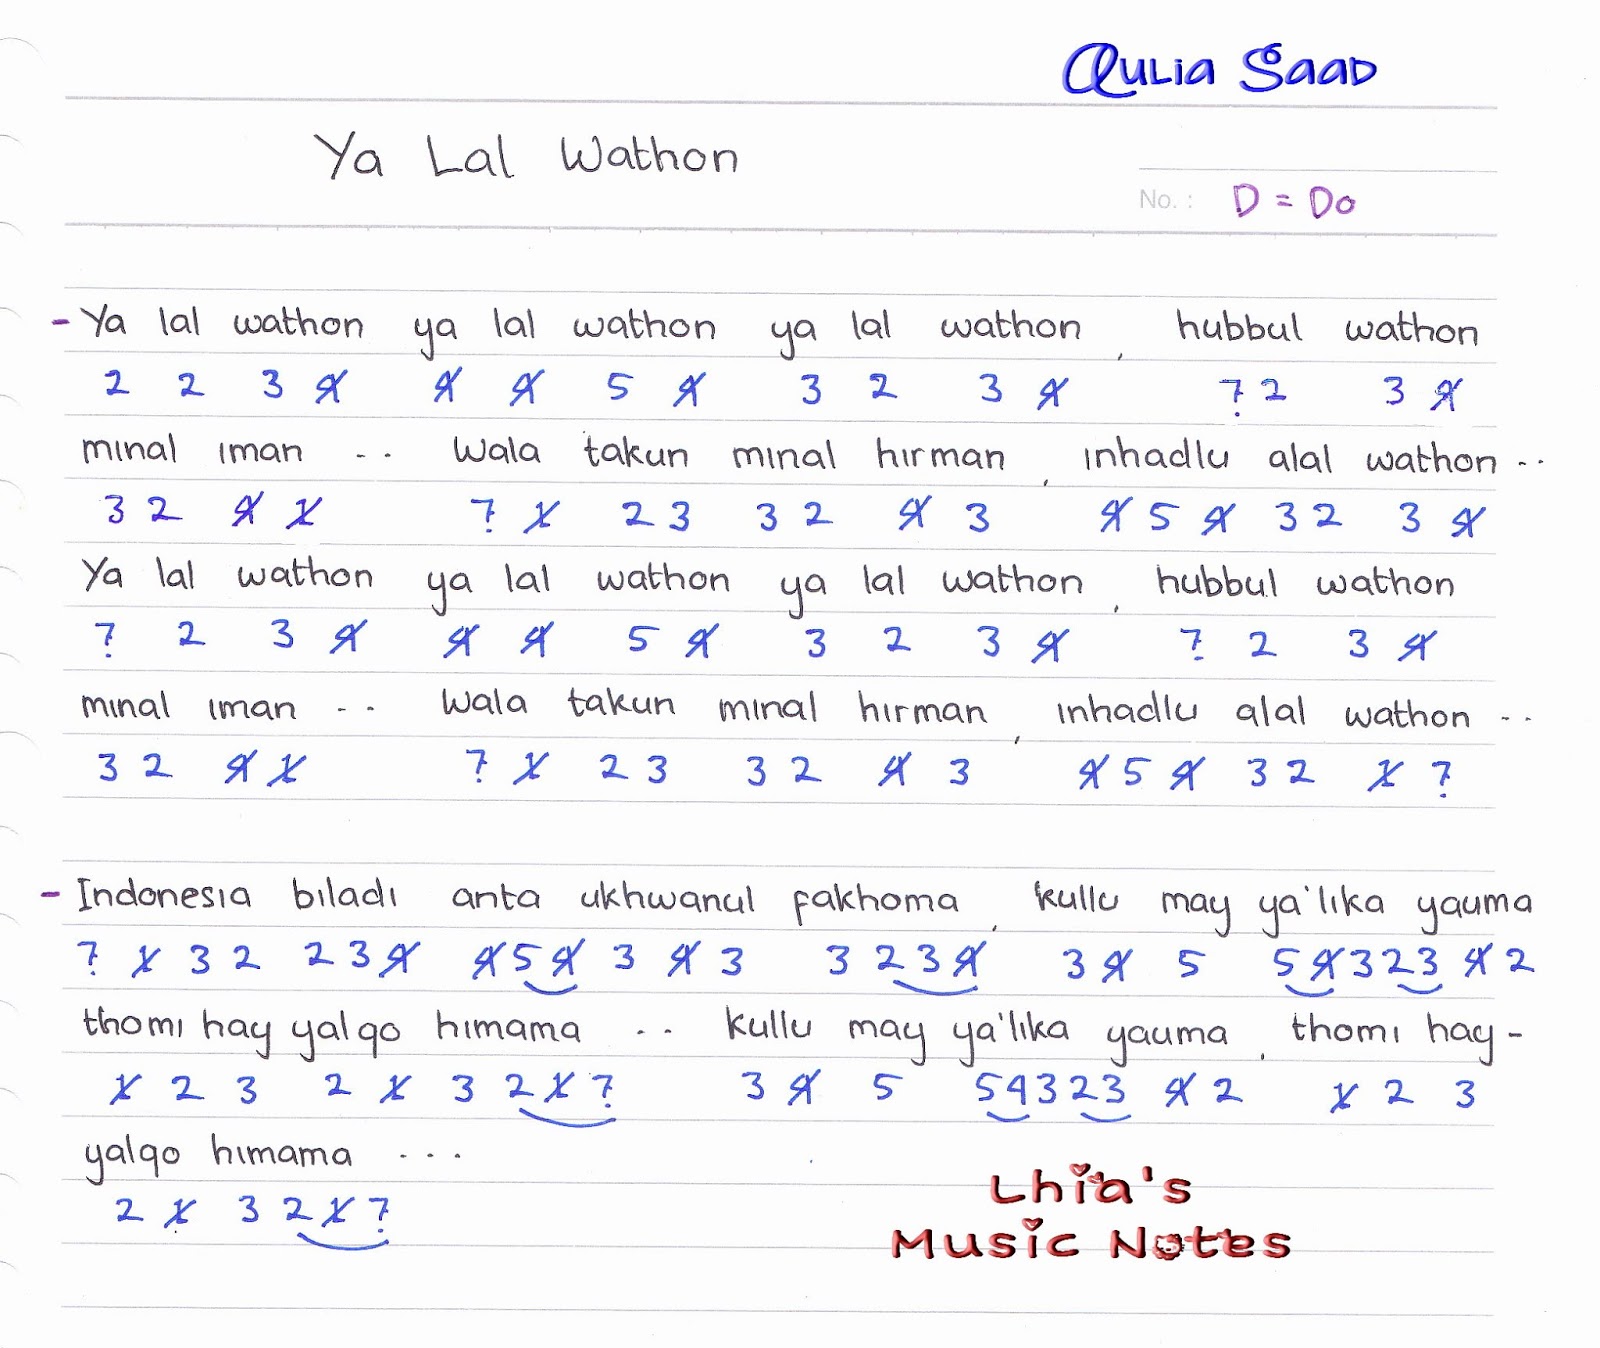 Aulia Saad
Ya Lal Wathon
No. : D = Do
- Ya lal wathon ya lal wathon ya lal wathon, hubbul wathon
2 2 3 4̸ 4̸ 4̸ 5 4̸ 3 2 3 4̸ 7̣ 2 3 4̸
minal iman .. wala takun minal hirman, inhadlu alal wathon ..
3 2 4̸ 1̸ 7̣ 1̸ 2 3 3 2 4̸ 3 4̸ 5 4̸ 3 2 3 4̸
Ya lal wathon ya lal wathon ya lal wathon, hubbul wathon
7̣ 2 3 4̸ 4̸ 4̸ 5 4̸ 3 2 3 4̸ 7̣ 2 3 4̸
minal iman .. wala takun minal hirman, inhadlu alal wathon ..
3 2 4̸ 1̸ 7̣ 1̸ 2 3 3 2 4̸ 3 4̸ 5 4̸ 3 2 1̸ 7̣
- Indonesia biladi anta ukhwanul fakhoma, kullu may ya'lika yauma
7̣ 1̸ 3 2 2 3 4̸ 4̸ 5 4̸ 3 4̸ 3 3 2 3 4̸ 3 4̸ 5 5 4̸ 3 2 3 4̸ 2
thomi hay yalqo himama .. kullu may ya'lika yauma, thomi hay -
1̸ 2 3 2 1̸ 3 2 1̸ 7̣ 3 4̸ 5 5 4 3 2 3 4̸ 2 1̸ 2 3
yalqo himama ...
2 1̸ 3 2 1̸ 7̣
Lhia's
Music Notes